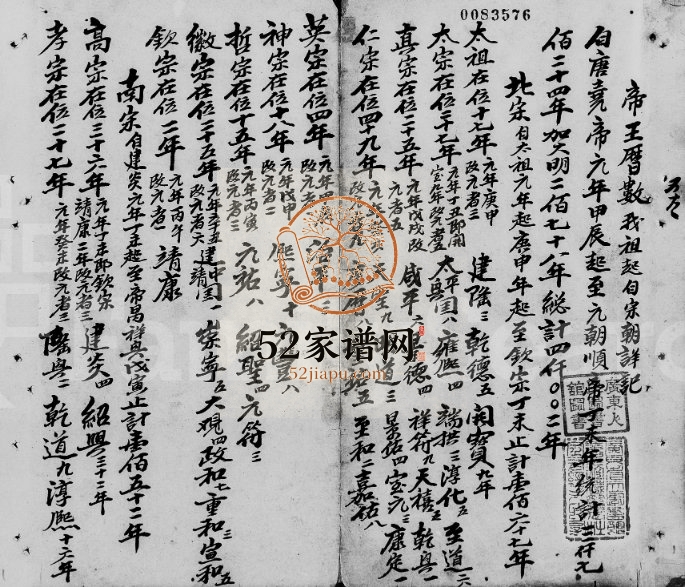 0083576
帝王曆數 我祖起自宋朝詳記
自唐堯帝元年甲辰起至元朝順帝丁未年統計三仟九
佰二十四年加大明二佰七十八年總計四仟〇〇二年
北宋 自太祖元年起庚申年起至欽宗丁未止計壹佰六十七年
太祖在位十七年 元年庚申 改元者三 建隆三 乾德五 開寶九年
太宗在位二十七年 太平興國八 雍熙四 端拱二 淳化五 至道
真宗在位二十五年 元年戊戌改 元者五 咸平 德四 祥符九 天禧五 乾興一
仁宗在位四十九年 天 九 道二 景祐四 宝元二 康定一
五 至和二 嘉祐八
英宗在位四年 治平
神宗在位十八年 元年戊申 改元者二 熙寧十 八
哲宗在位十五年 元年丙寅 改元者三 元祐八 紹聖四 元符三
徽宗在位二十五年 元年辛巳 改元者六 建中靖國一 崇寧五 大观四 政和七 重和 宣和五
欽宗在位二年 元年丙午 改元者一 靖康
南宋 自建炎元年丁未起至帝昺祥興戊寅止計壹佰五十二年
高宗在位三十六年 元年丁未即欽宗 靖康二年改元者二 建炎四 紹興三十二年
孝宗在位二十七年 元年癸未改元者三 隆興二 乾道九 淳熙十六年
52家谱网
52jiapu.com
廣東人
館圖書